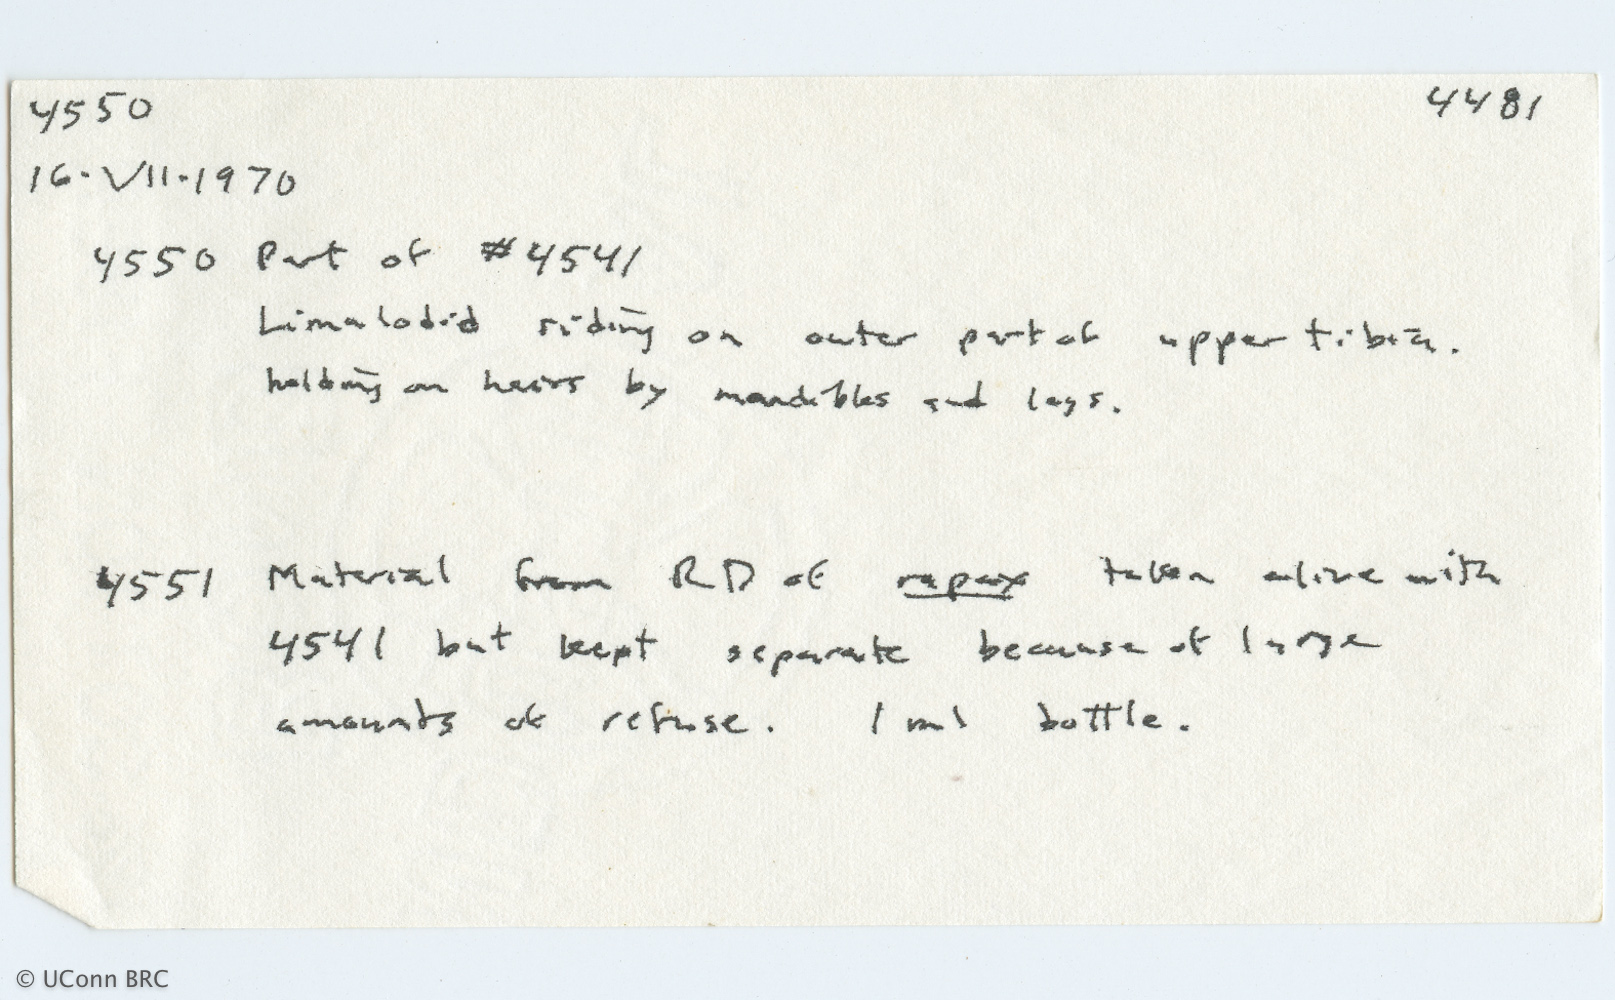 4550 4481
16·VII·1970
4550 Part of #4541
Limalodid riding on outer part of upper tibia.
holding on hairs by mandibles and legs.
4551 Material from RD of rapax taken alive with
4541 but kept separate because of large
amounts of refuse. 1 ml bottle.
© UConn BRC